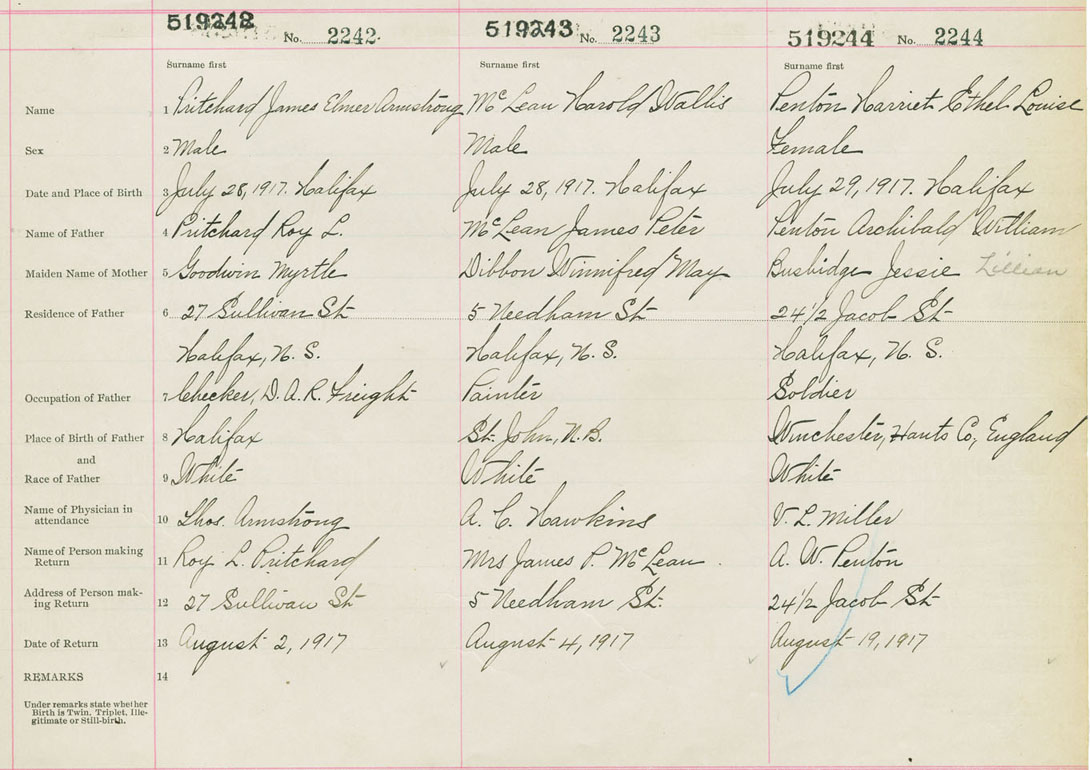 519242 No. 2242. 519243 No. 2243 519244 No. 2244
Surname first Surname first Surname first
Name 1 Pritchard James Elmer Armstrong McLean Harold Wallis Penton Harriet Ethel Louise
Sex 2 Male Male Female
Date and Place of Birth 3 July 28, 1917. Halifax July 28, 1917. Halifax July 29, 1917. Halifax
Name of Father 4 Pritchard Roy L. McLean James Peter Penton Archibald William
Maiden Name of Mother 5 Goodwin Myrtle Dibbon Winnifred May Busbidge Jessie Lillian
Residence of Father 6 27 Sullivan St 5 Needham St 24 1/2 Jacob St
Halifax, N. S. Halifax, N. S. Halifax, N. S.
Occupation of Father 7 Checker, D. A. R. Freight Painter Soldier
Place of Birth of Father 8 Halifax St. John, N. B. Winchester, Hants Co, England
and
Race of Father 9 White White White
Name of Physician in
attendance 10 Thos. Armstrong A. C. Hawkins V. L. Miller
Name of Person making
Return 11 Roy L. Pritchard Mrs James P. McLean. A. W. Penton
Address of Person mak-
ing Return 12 27 Sullivan St 5 Needham St. 24 1/2 Jacob St
Date of Return 13 August 2, 1917 August 4, 1917 August 19, 1917
REMARKS 14
Under remarks state whether
Birth is Twin, Triplet, Ille-
gitimate or Still-birth.